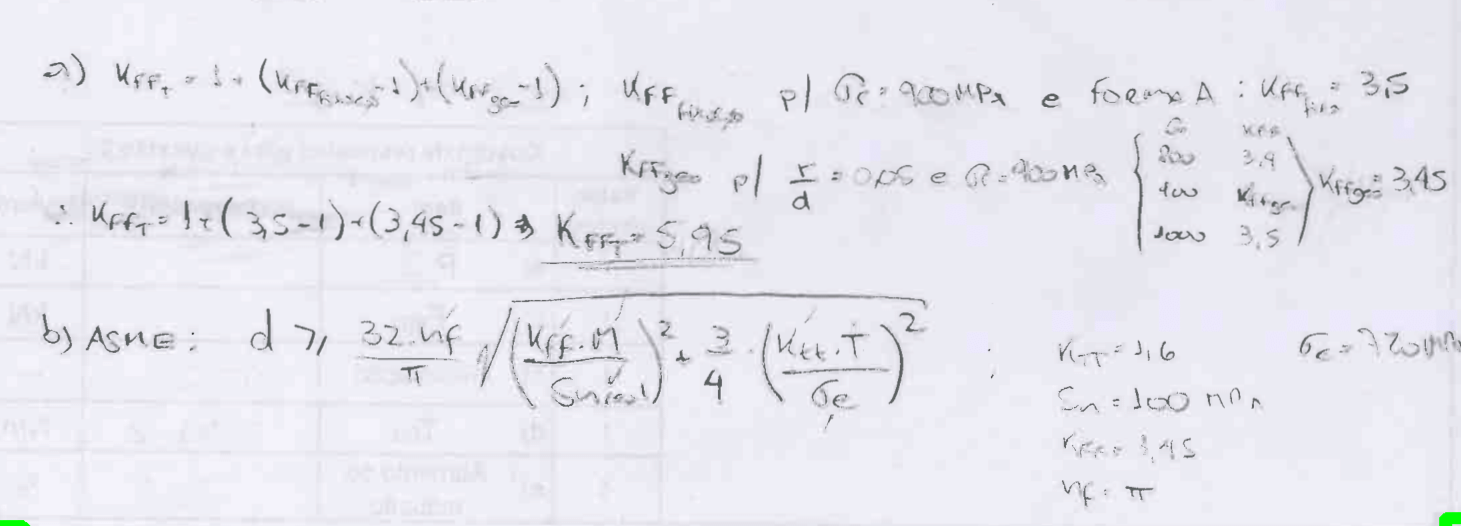 a) KffT = 1 + (Kff fixação - 1) + (Kff geo - 1) ; Kff fixação p/ σr = 900 MPa e forma A : Kff fix = 3,5
Kff geo p/ r/d = 0,05 e σr = 900 MPa { σ Kff
800 3,4
900 Kff geo } Kff geo = 3,45
1000 3,5
∴ KffT = 1 + (3,5 - 1) + (3,45 - 1) → KffT = 5,95
b) ASME : d ≥ 32.nf/π √((Kff.M/Sn real)² + 3/4 . (Kft.T/σe)²) ; KTT = 1,6 σe = 720 MPa
Sn = 100 MPa
Kff = 3,45
nf = π